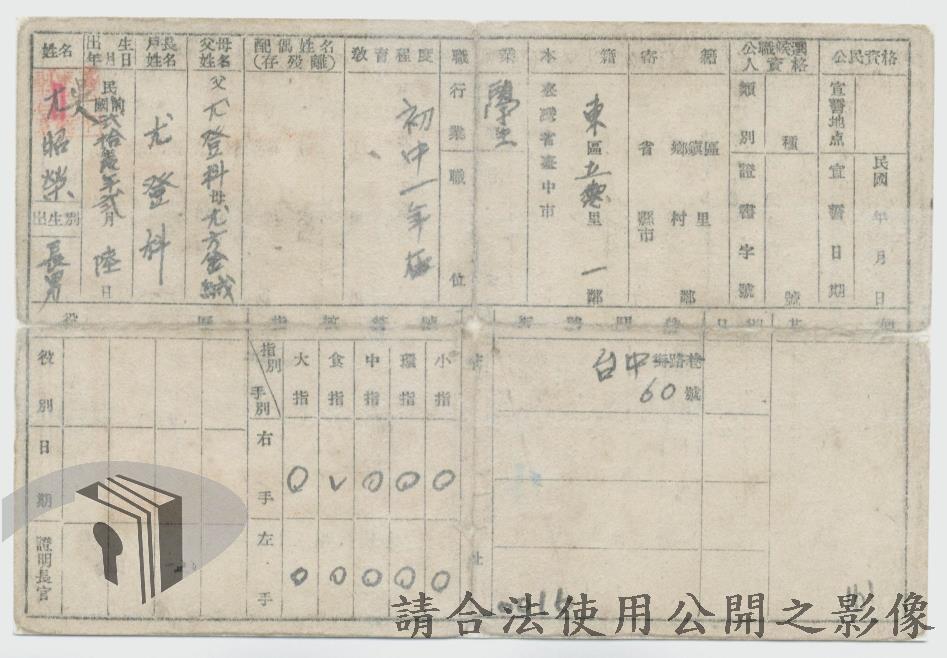 姓名
尤昭榮
出生別
長男
出生年月日
民國前
年 月 陸日
戶長姓名
尤登科
父母姓名
父 尤登科 母 尤方金絨
配偶姓名(存歿離)
教育程度
初中一年
職業
行業 職位
學生
本籍
臺灣省臺中市
東區立德里一鄰
寄籍
省 縣市
鄉鎮區 村里 鄰
公職候選人資格
類別 證書字號
種 號
公民資格
宣誓地点 宣誓日期
民國 年 月 日
役歷
役別
日期
證明長官
指紋符號
指別
手別
大指
食指
中指
環指
小指
右手
○ v ○ ○ ○
左手
○ ○ ○ ○ ○
住址
台中 路巷
60號
請合法使用公開之影像